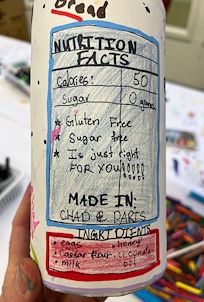 Bread
NUTRITION
FACTS
Calories: 50
Sugar 0 grams
* Gluten Free
* Sugar free
* Is just right
FOR YOU!!!!!!
MADE IN:
CHAD & PARIS
INGRIDIENTS
• eggs • honey
• Cassar flour • coconut
• milk oil